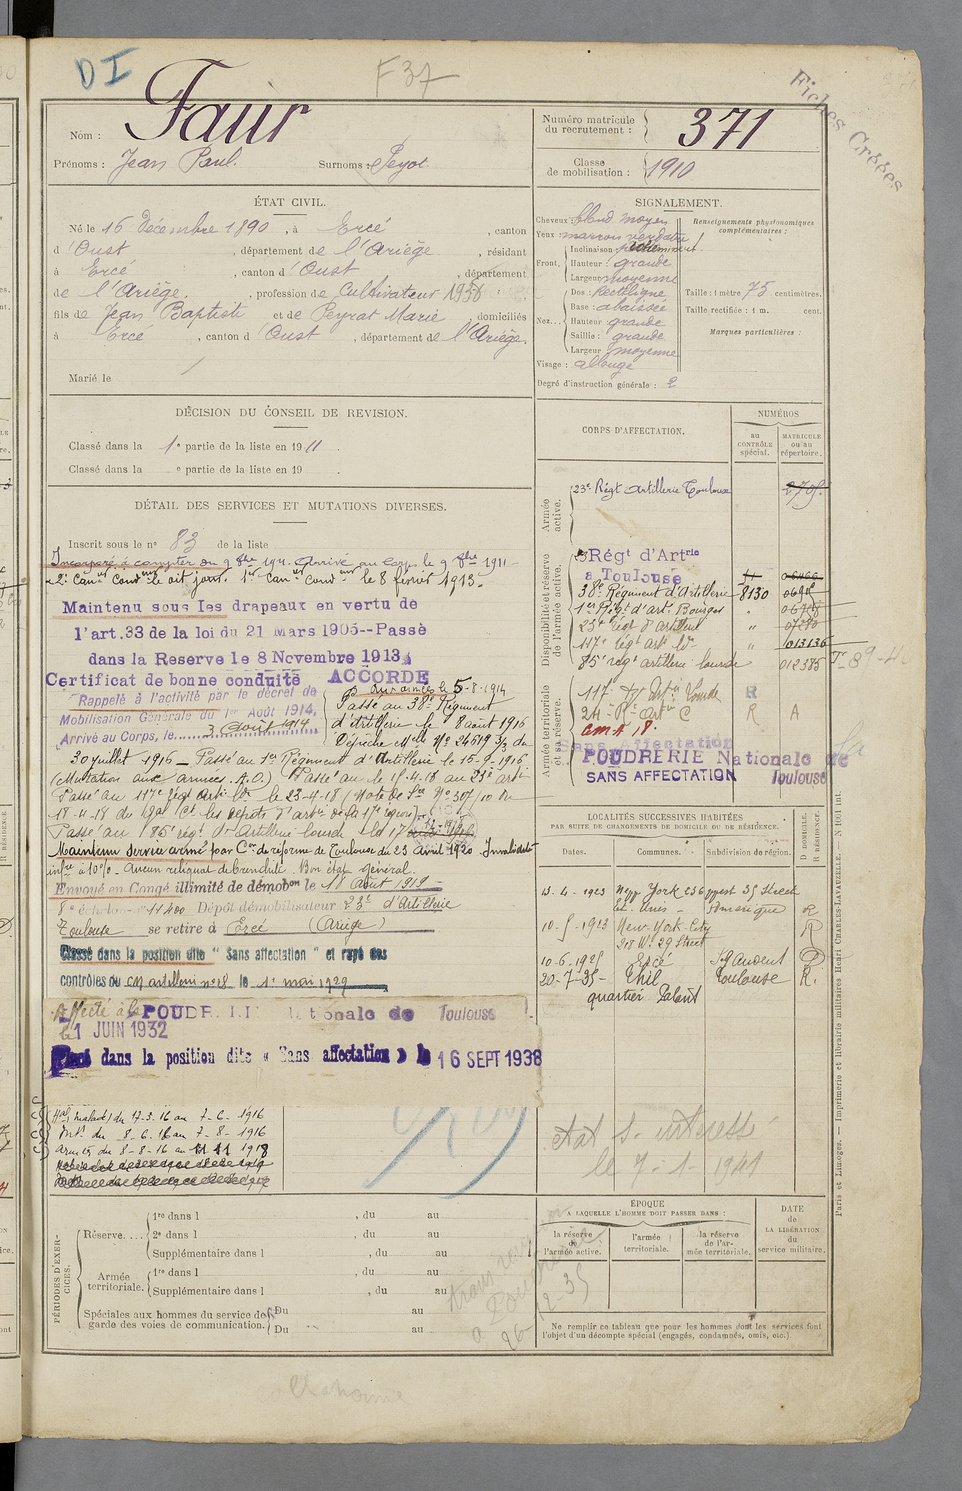 DI
F 37
Fiches Créées
Nom : Faur
Prénoms : Jean Paul Surnoms : Peyot
Numéro matricule du recrutement : 371
Classe de mobilisation : 1910
ÉTAT CIVIL.
Né le 16 Décembre 1890, à Ercé, canton
d'Oust, département de l'Ariège, résidant
à Ercé, canton d'Oust, département
de l'Ariège, profession de Cultivateur
fils de Jean Baptiste et de Peyrat Marie, domiciliés
à Ercé, canton d'Oust, département de l'Ariège.
Marié le
SIGNALEMENT.
Cheveux : blond moyen
Yeux : marron verdâtre
Renseignements physionomiques complémentaires :
Front. Inclinaison :
Hauteur : grande
Largeur : moyenne
Nez... Dos : Rectiligne
Base : abaissée
Hauteur grande
Saillie : grande
Largeur moyenne
Visage : allongé
Taille : 1 mètre 75 centimètres.
Taille rectifiée : 1 m. cent.
Marques particulières :
Degré d'instruction générale : 2
DÉCISION DU CONSEIL DE REVISION.
Classé dans la 1e partie de la liste en 1911.
Classé dans la e partie de la liste en 19 .
DÉTAIL DES SERVICES ET MUTATIONS DIVERSES.
Inscrit sous le no 83 de la liste
Incorporé à compter du 9 8bre 1911. Arrivé au corps le 9 8bre 1911
2e Canr Condr le dit jour. 1er Canr Condr le 8 février 1913.
Maintenu sous les drapeaux en vertu de
l'art.33 de la loi du 21 Mars 1905--Passé
dans la Reserve le 8 Novembre 1913
Certificat de bonne conduite ACCORDÉ
Rappelé à l'activité par le décret de
Mobilisation Générale du 1er Août 1914.
Arrivé au Corps, le 3 Août 1914
Aux armées le 5-8-1914
Passé au 38e Régiment
d'artillerie le 8 août 1916
Dépêche Melle No 24619 3/3 du
30 juillet 1916 - Passé au 1er Régiment d'Artillerie le 15-9-1916
(Mutation aux armées. A.O.) Passé au le 15-4-18 au 23e arti
Passé au 117e régt Artie lde le 23-4-18 (Note de Sce No 307/10 du
18-4-18 du Gal Ct les dépôts d'artie de la 17e région)
Passé au 185e régt d'Artillerie lourde le 17
Maintenu service armé par Con de réforme de Toulouse du 23 Avril 1920. Invalidité
infre à 10% - Aucun reliquat de bronchite. Bon état général.
Envoyé en Congé illimité de démobon le 18 Août 1919
8e échelon no 11400 Dépôt démobilisateur 23e d'Artillerie
Toulouse se retire à Ercé (Ariège)
Classé dans la position dite "Sans affectation" et rayé des
contrôles du CM artillerie no 18 le 1e mai 1929
Affecté à la POUDRERIE Nationale de Toulouse
le 1 JUIN 1932
Placé dans la position dite « Sans affectation » le 16 SEPT 1938
Hal (malade) du 17-3-16 au 7-6-1916
Intr du 8-6-16 au 7-8-1916
Armées du 8-8-16 au 11 11 1918
CORPS D'AFFECTATION.
NUMÉROS
au CONTRÔLE spécial.
MATRICULE ou au répertoire.
Armée active.
23e Régt Artillerie Toulouse 2705
Disponibilité et réserve de l'armée active.
23 Régt d'Artrie
a Toulouse
38e Régiment d'Artillerie 8130
1er Régt d'art. Bourges "
23e régt d'artillerie " 07280
117e régt arti lde " 013136
85e régt artillerie lourde 012385
T-89-4
Armée territoriale et sa réserve.
117e Rt Artie Lourde R
24e Rt Artie C R A
cm A 18.
Sans Affectation
POUDRERIE Nationale de
SANS AFFECTATION Toulouse
LOCALITÉS SUCCESSIVES HABITÉES
PAR SUITE DE CHANGEMENTS DE DOMICILE OU DE RÉSIDENCE.
Dates. Communes. Subdivision de région. D DOMICILE. R RÉSIDENCE.
13-4-1923 New York 236 West 35 Street
Et. Unis - Amérique R
10-5-1923 New-York-City R
318 W. 29 Street
10-6-1925 Ercé St Gaudens D
20-7-35- Thil Toulouse R.
quartier Palant
Etat S. intéressé
le 7-1-1941
PÉRIODES D'EXERCICES.
Réserve.... 1re dans l , du au
2e dans l , du au
Supplémentaire dans l , du au
Armée territoriale. 1re dans l , du au
Supplémentaire dans l , du au
Spéciales aux hommes du service de garde des voies de communication. Du au
Du au
ÉPOQUE
A LAQUELLE L'HOMME DOIT PASSER DANS :
la réserve de l'armée active.
l'armée territoriale.
la réserve de l'armée territoriale.
DATE de LA LIBÉRATION du service militaire.
Ne remplir ce tableau que pour les hommes dont les services font
l'objet d'un décompte spécial (engagés, condamnés, omis, etc.).
Paris et Limoges. — Imprimerie et librairie militaires Henri CHARLES-LAVAUZELLE. — N 1001 ini.